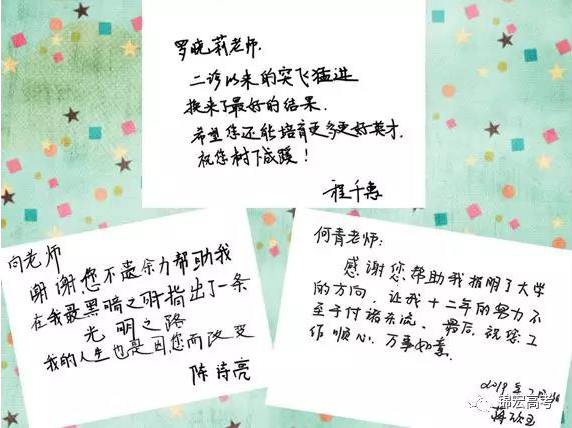 罗晓莉老师.
二诊以来的突飞猛进
换来了最好的结果.
希望您还能培育更多更好英才.
祝您树下成蹊!
程千惠
向老师
谢谢您不遗余力帮助我
在我最黑暗之时指出了一条
光明之路
我的人生也是因您而改变
陈诗亮
何青老师:
感谢您帮助我指明了大学
的方向, 让我十二年的努力不
至于付诸东流. 最后, 祝您工
作顺心, 万事如意.
2019年
锦宏高考